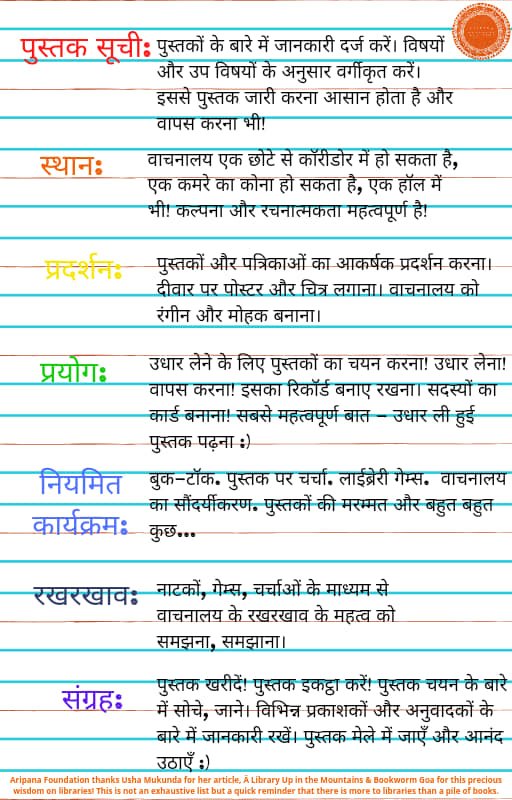 पुस्तक सूची: पुस्तकों के बारे में जानकारी दर्ज करें। विषयों
और उप विषयों के अनुसार वर्गीकृत करें।
इससे पुस्तक जारी करना आसान होता है और
वापस करना भी!
स्थान: वाचनालय एक छोटे से कॉरीडोर में हो सकता है,
एक कमरे का कोना हो सकता है, एक हॉल में
भी! कल्पना और रचनात्मकता महत्वपूर्ण है!
प्रदर्शन: पुस्तकों और पत्रिकाओं का आकर्षक प्रदर्शन करना।
दीवार पर पोस्टर और चित्र लगाना। वाचनालय को
रंगीन और मोहक बनाना।
प्रयोग: उधार लेने के लिए पुस्तकों का चयन करना! उधार लेना!
वापस करना! इसका रिकॉर्ड बनाए रखना। सदस्यों का
कार्ड बनाना! सबसे महत्वपूर्ण बात – उधार ली हुई
पुस्तक पढ़ना :)
नियमित
कार्यक्रम:
बुक-टॉक. पुस्तक पर चर्चा. लाईब्रेरी गेम्स. वाचनालय
का सौंदर्यीकरण. पुस्तकों की मरम्मत और बहुत बहुत
कुछ...
रखरखाव: नाटकों, गेम्स, चर्चाओं के माध्यम से
वाचनालय के रखरखाव के महत्व को
समझना, समझाना।
संग्रह: पुस्तक खरीदें! पुस्तक इकट्ठा करें! पुस्तक चयन के बारे
में सोचे, जाने। विभिन्न प्रकाशकों और अनुवादकों के
बारे में जानकारी रखें। पुस्तक मेले में जाएँ और आनंद
उठाएँ :)
Aripana Foundation thanks Usha Mukunda for her article, A Library Up in the Mountains & Bookworm Goa for this precious
wisdom on libraries! This is not an exhaustive list but a quick reminder that there is more to libraries than a pile of books.